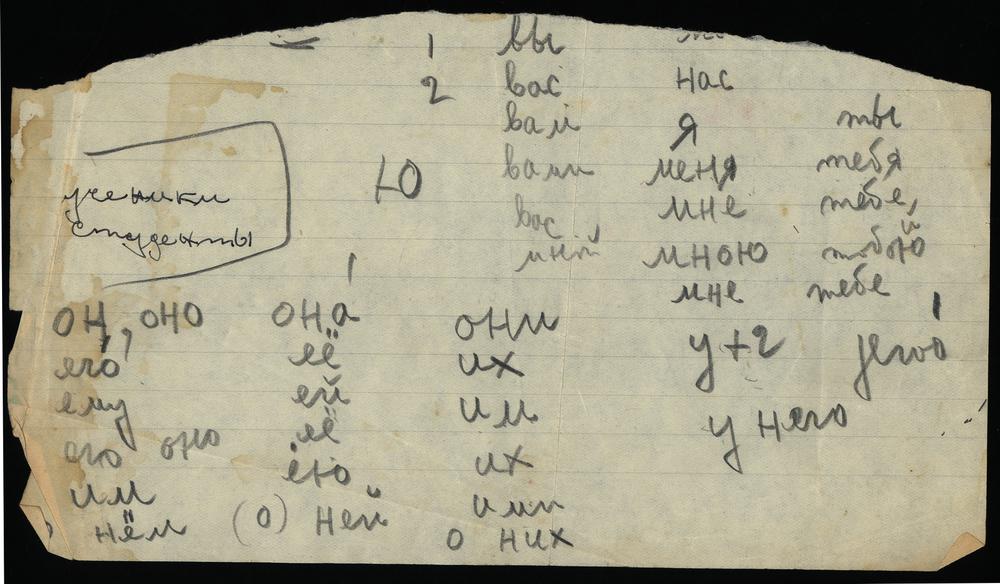 1 вы
2 вас нас
вам я ты
вами меня тебя
ученики Ю вас мне тебе,
студенты мной мною тобою й
мне тебе
он, оно она они
его её их у+2
ему ей им у него
его оно её их
им ею ими
нём (о) ней о них